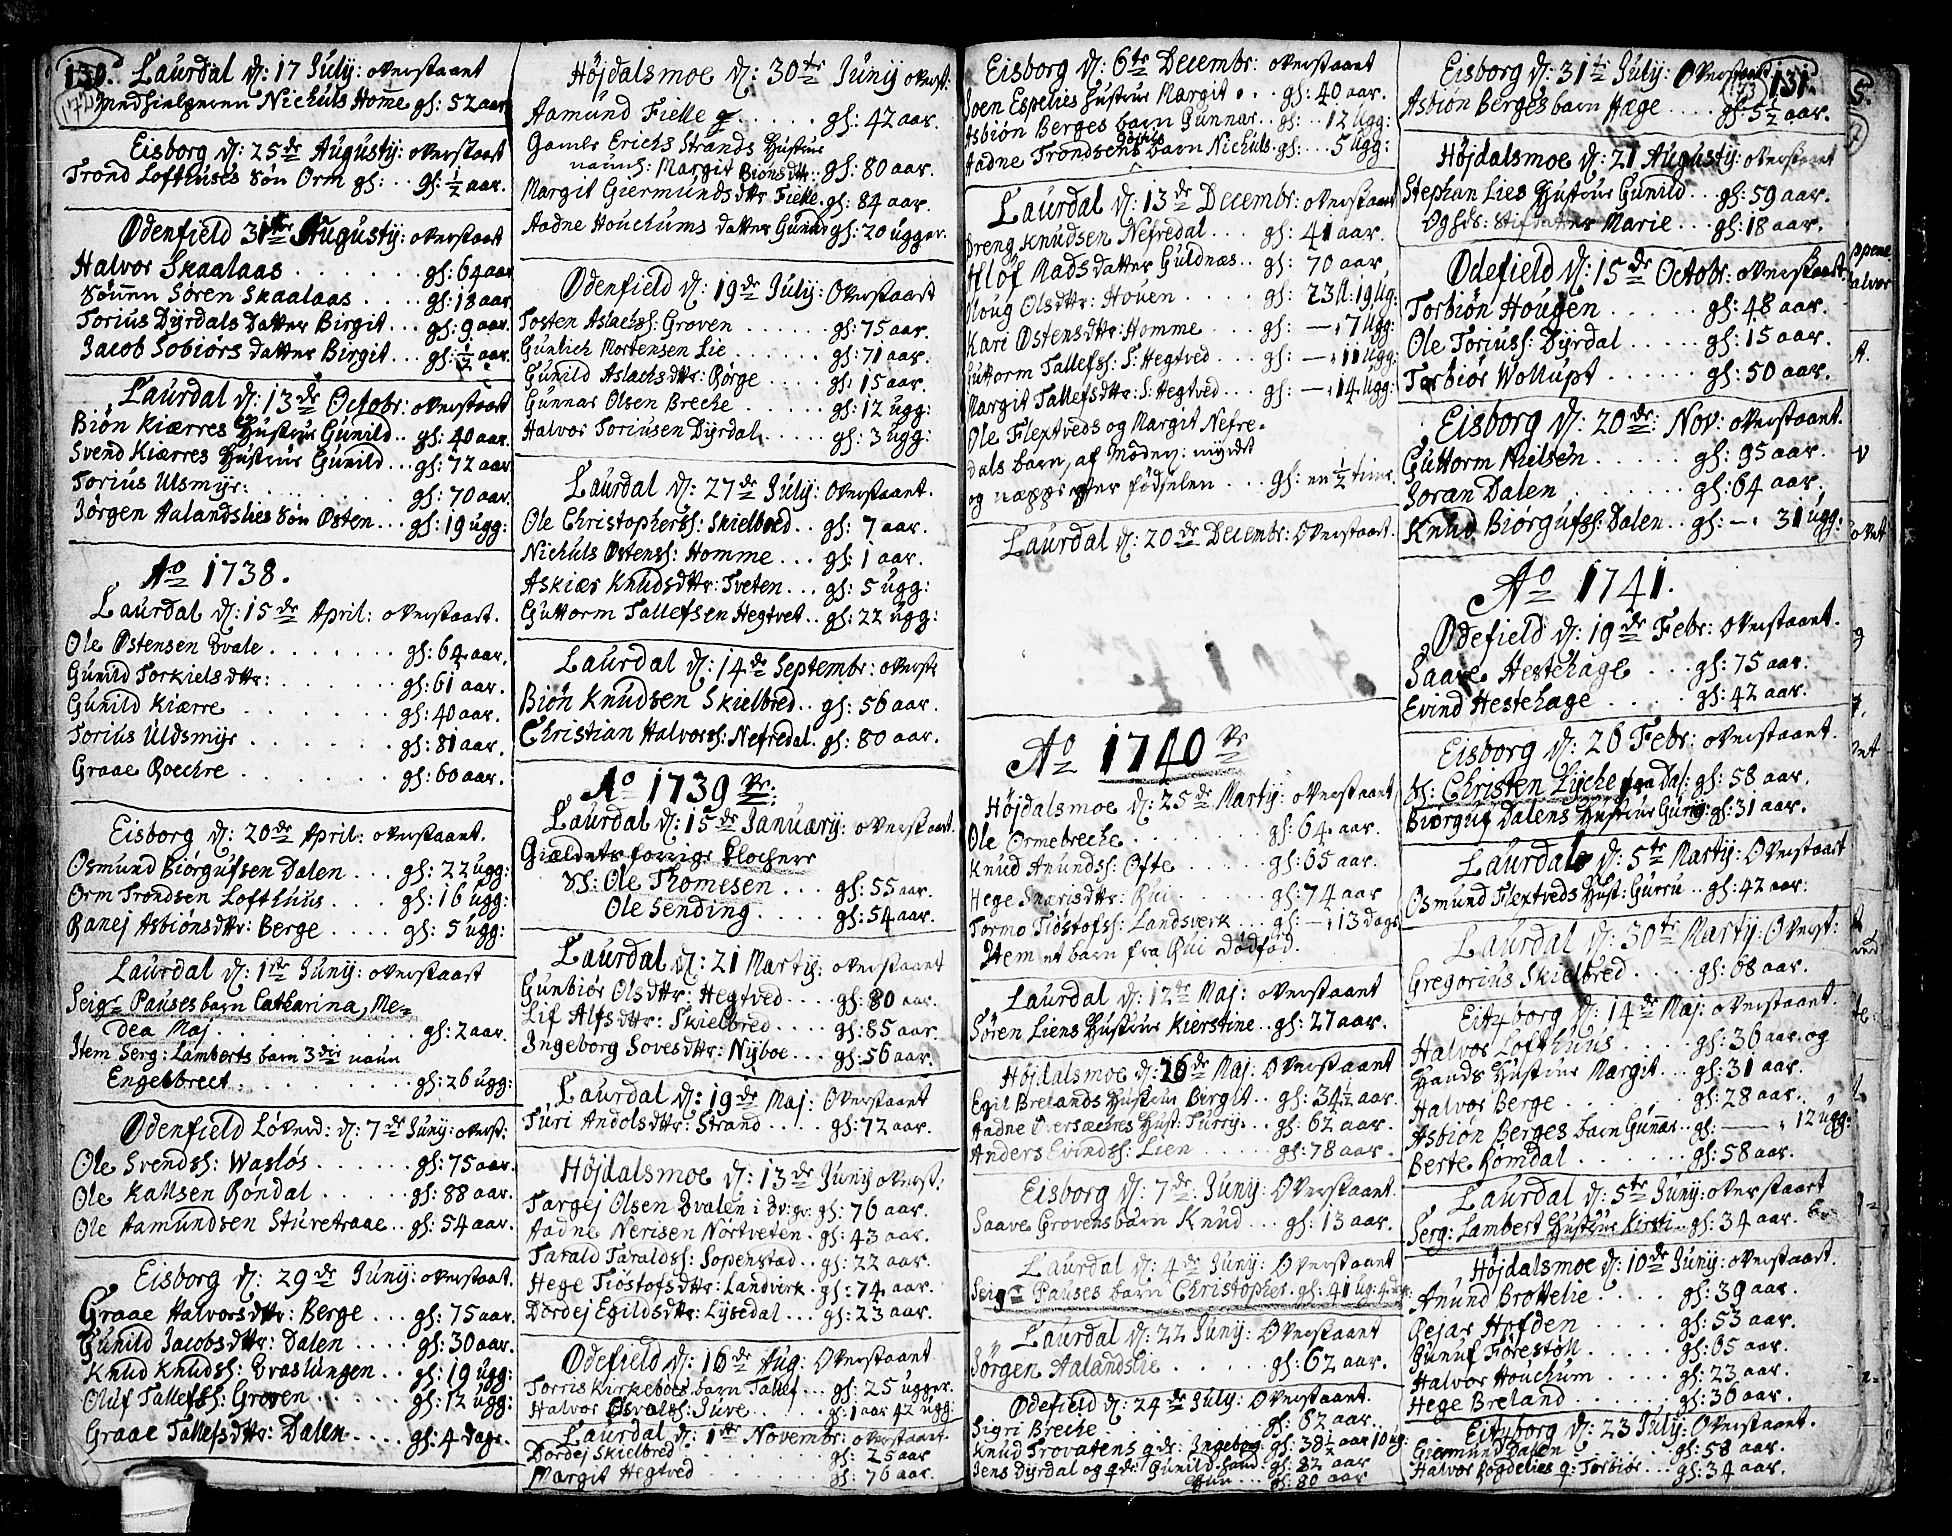 130.
172
Laurdal d: 17 Julÿ: overstaaet
Medhielperen Nichuls Home gl: 52 aar.
Eisborg d: 25de Augustÿ: overstaaet
Trond Lofthuses Søn Orm gl: .. gl: ½ aar.
Ødenfield 31te Augustÿ: overstaaet
Halvor Skaalaas . . . gl: 64 aar
Sønnen Søren Skaalaas .... gl: 18 aar
Torius Dÿrdals Datter Birgit... gl: 9 aar.
Jacob Sobiørs datter Birgit... gl: ½ aar.
Laurdal d: 13de Octobr: overstaaet
Biøn Kiærres Hustrue Gunild.. gl: 40 aar.
Svend Kiærres Hustrue Gunild... gl: 72 aar
Torius Ulsmÿr: . . . gl: 70 aar.
Jørgen Aalandslies Søn Østen... gl: 19 ugg:
Ao 1738.
Laurdal d: 15de April: overstaaet.
Ole Østensen Dvale . . . . gl: 64 aar.
Gunild Torkielsdttr: . . . . gl: 61 aar.
Gunild Kiærre . . . . gl: 40 aar.
Torius Uldsmÿr . . . . gl: 81 aar.
Graae Roechre . . . . gl: 60 aar.
Eisborg d: 20de April: overstaaet.
Osmund Biørgufsen Dalen ... gl: 22 ugg:
Orm Trondsen Lofthuus .... gl: 16 ugg:
Ranej Asbiønsdttr: Berge .... gl: 5 ugg:
Laurdal d: 1ste Junÿ: overstaaet
Seigr Pauses barn Catharina, Me=
dea Maj . . . . gl: 2 aar.
Item Serg: Lamberts barn 3die naun
Engelbrect . . . . gl: 26 ugg:
Ødenfield Løverd: d: 7de Junÿ: overst:
Ole Svends: Wasløs . . . . gl: 75 aar.
Ole Kallsen Røndal . . . . gl: 88 aar.
Ole Aamundsen Stüretraae.. gl: 54 aar.
Eisborg d: 29de Junÿ: overstaaet.
Graae Halvorsdttr: Berge ... gl: 75 aar.
Gunild Jacobsdttr: Dalen .... gl: 30 aar.
Knud Knuds: Braslungen .. gl: 19 ugg:
Oluf Tallefs: Groven . . . gl: 12 ugg:
Graae Tallefsdttr: Dalen .... gl: 4 dage.
Højdalsmoe d: 30te Junÿ overst:
Aamund Fielle . . . . gl: 42 aar.
Gamle Erichs Strands Hustrue
naunl: Margit Biønsdtr: gl: 80 aar.
Margit Giermundsdttr Fielle. gl: 84 aar.
Aadne Houchums datter Gunild gl: 20 ugger.
Ødenfield d: 19de Julÿ: Overstaaet
Tosten Aslachs: Groven . . . . gl: 75 aar.
Gunlich Mortensen Lie . . . . gl: 71 aar.
Gunild Aslachsdttr: Rørge .... gl: 15 aar.
Gunnar Olsen Breche . . . . gl: 12 ugg:
Halvor Toriusen Dÿrdal. .... gl: 3 ugg:
Laurdal d: 27de Julÿ: Overstaaet.
Ole Christophers: Skielbred.. gl: 7 aar.
Nichuls Østens: Homme ... gl: 1 aar.
Askier Knudsdttr: Tveten ... gl: 5 ugg:
Guttorm Tallefsen Hegtvet.. gl: 22 ugg:
Laurdal d: 14de Septembr: overst:
Biøn Knudsen Skielbred.. gl: 56 aar.
Christian Halvors: Nefredal. gl: 80 aar.
Ao 1739
Laurdal d: 15de Januarÿ: overstaaet.
Gieldets forrige Klochere
Sl: Ole Thomesen ... gl: 55 aar.
Ole Sending . . . . gl: 54 aar.
Laurdal d: 21 Martÿ: overstaaet
Gunbiør Olsdttr: Hegtved.... gl: 80 aar.
Lif Alfsdttr: Skielbred .... gl: 85 aar.
Ingeborg Sovesdttr: Nÿboe... gl: 56 aar.
Laurdal d: 19de Maj: Overstaaet
Turi Andolsdttr: Strand ..... gl: 72 aar.
Højdalsmoe d: 13de Junÿ overst:
Targej Olsen Dvalen i gl: 76 aar.
Aadne Nerisen Nortveten. gl: 43 aar.
Tarald Taralds: Sopenstad.. gl: 22 aar.
Hege Tiøstofsdttr: Landverk. gl: 74 aar.
Dordej Egildsdttr: Lÿsedal ... gl: 23 aar.
Ødefield d: 16de Aug: Overstaaet
Torris Kirkeboes barn Tallef... gl: 25 ugger.
Halvor Osvolds: Juve . . . gl: 1 aar 42 ugg:
Laurdal d: 1ste Novembr: overstaaet
Dordej Skielbred . . . . gl: 25 aar
Margit Hegtved . . . . gl: 76 aar.
Eisborg d: 6te Decembr: overstaaet
Joen Espelies Hustrue Margit . . gl: 40 aar.
Asbiøn Berges barn Gunnar.. gl: .. 12 ugg:
Aadne Trondsens barn Nichuls. gl: ... 5 ugg:
Laurdal d: 13de Decembr: overstaaet
Dreng Knudsen Nefredal ... gl: 41 aar.
Alof Madsdatter Guldnæs.. gl: 70 aar.
Houg Olsdttr: Houen . . . . gl: 23 a: 19 ug:
Kari Østensdttr: Homme .... gl: — 17 ugg:
Guttorm Tallefs: S: Hegtved ... gl: — 11 ugg:
Margit Tallefsdttr: S: Hegtved ... gl: — 14 ugg:
Ole Flextveds og Margit Nefre=
dals barn, af Moder: myrdet
og næppe efter fødselen ... gl: en ½ time.
Laurdal d: 20de Decembr: Overstaaet.
Ao 1740
Højdalsmoe d: 25de Martÿ: overstaaet
Ole Ormebreche . . . . gl: 64. aar.
Knud Anunds: Ofte . . . . gl: 65 aar.
Hege Snarisdttr: Rui . . . . gl: 74 aar.
Tormo Tiøstofs: Landsverk ... gl: — 13 dage
Item et barn fra Rui dødfød.
Laurdal d: 12te Maj: overstaaet
Søren Liens Hustrue Kierstine.. gl: 27 aar.
Højdalsmoe d: 26de Maj: Overstaaet
Egil Brelands Hustrue Birgit.. gl: 34½ aar.
Aadne Hust: Turri. .. gl: 62 aar.
Anders Evinds: Lien . . . . gl: 78 aar.
Eisborg d: 7de Junÿ: Overstaaet
Saave Grovens barn Knud ... gl: 13 aar.
Laurdal d: 4de Junÿ: Overstaaet
Seigr Pauses barn Christopher. gl: 41 ug: 4 dg:
Laurdal d: 22 Junÿ: Overstaaet
Jørgen Aalandslie . . . . gl: 62 aar.
Ødefield d: 24de Julÿ: Overstaaet.
Sigri Breche . . . . gl: 62 aar.
Knud Trovatens q de: Ingebog gl: 38½ aar 10 ug:
Jens Dÿrdal og q de: Gunild. hand gl: 82 aar
Hun ... gl: 80 aar
131.
173
Eisborg d: 31te Julÿ: Overstaaet
Asbiøn Berges barn Hæge .... gl: 5½ aar.
Højdalsmoe d: 21 Augustÿ: overstaaet
Stephan Lies Hustrue Gunild .. gl: 59 aar.
Og hds: Stifdatter Marie ... gl: 18 aar.
Ødefield d: 15de Octobr: overstaaet.
Torbiøn Hougen . . . . gl: 48 aar.
Ole Torius: Dÿrdal . . . . gl: 15 aar.
Torbiør Wollupt . . . . gl: 50 aar.
Eisborg d: 20de: Nov: overstaaet.
Guttorm Nielsen . . . . gl: 95 aar.
Joran Dalen . . . . gl: 64 aar.
Knud Biørgufs: Dalen.. gl: — 31 ugg:
Ao 1741.
Ødefield d: 19de Febr: overstaaet.
Saave Hestehage ... gl: 75 aar.
Eivind Hestehage .... gl: 42 aar.
Eisborg d: 26 Febr: overstaaet.
Sl: Christen Lÿche fra Dal: gl: 58 aar.
Biørguf Dalens Hustrue Guroe gl: 31 aar.
Laurdal d: 5te Martÿ: Overstaaet
Osmund Flextveds Hust: Gurru .. gl: 42 aar.
Laurdal d: 30te Martÿ: Overst:
Gregorius Skielbred .... gl: 68 aar.
Eitzborg d: 14de Maj: overstaaet
Halvor Lofthuus . . . . gl: 36 aar. og
Hands Hustrue Margit... gl: 31 aar.
Halvor Berge . . . . gl: 28 aar.
Asbiøn Berges barn Gunar.. gl: — 12 ugg:
Berte Rømdal . . . . gl: 58 aar.
Laurdal d: 5te Junÿ: overstaaet
Serg: Lambert Hustrue Kirsti.. gl: 34 aar.
Højdalsmoe d: 10de Junÿ: overstaaet.
Anund Brottelie .... gl: 39 aar.
Rejar Hofden . . . . gl: 53 aar.
Gunuf Forestøll . . . gl: 65 aar.
Halvor Houchum .... gl: 23 aar.
Hege Breland . . . . gl: 30 aar.
Eitzborg d: 23 Julÿ: Overstaaet.
Giermund Dalen . . . . gl: 58 aar.
Halvor Rogdelies q: Torbiør ... gl: 34 aar.